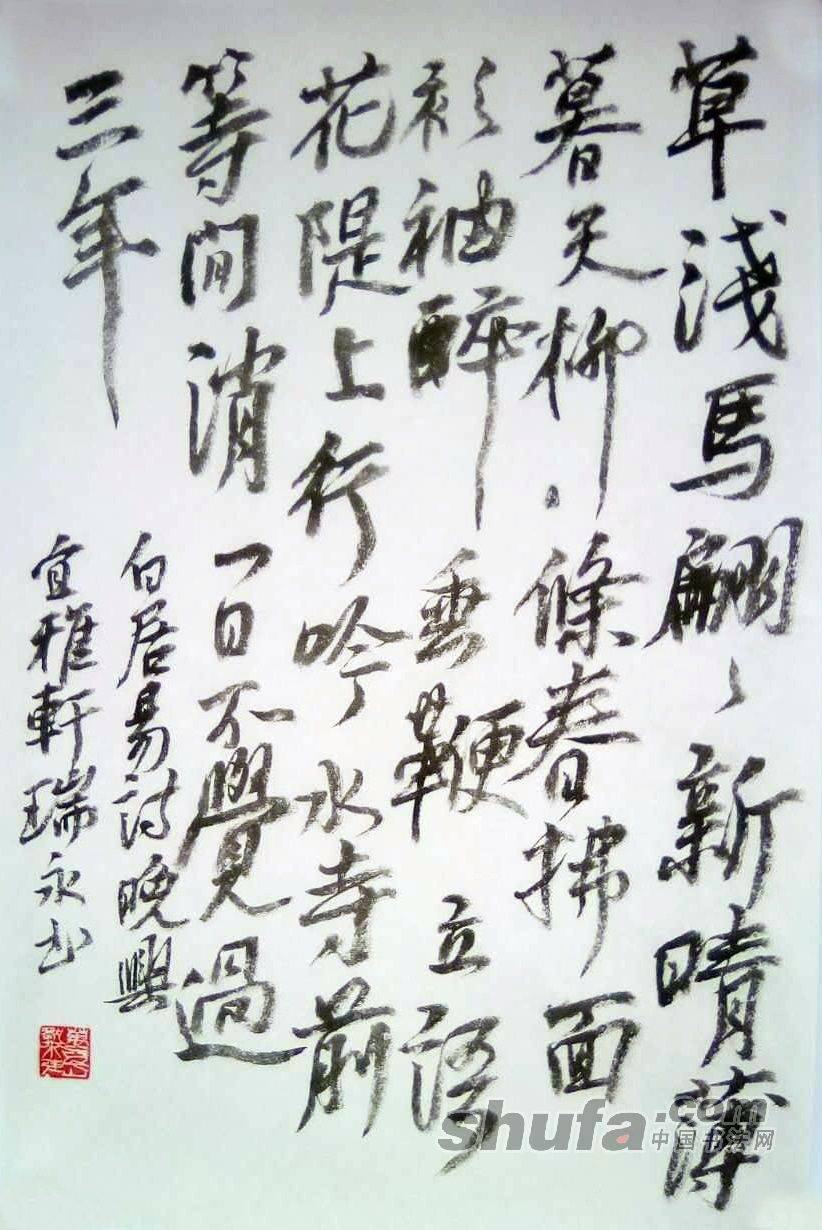 草淺馬翩〻新晴薄
暮天柳、條春拂面
衫袖醉垂鞭立語
花隄上行吟水寺前
等間消一日不覺過
三年
白居易詩晚興
宜雅軒瑞永书
shufa.com
中国书法网